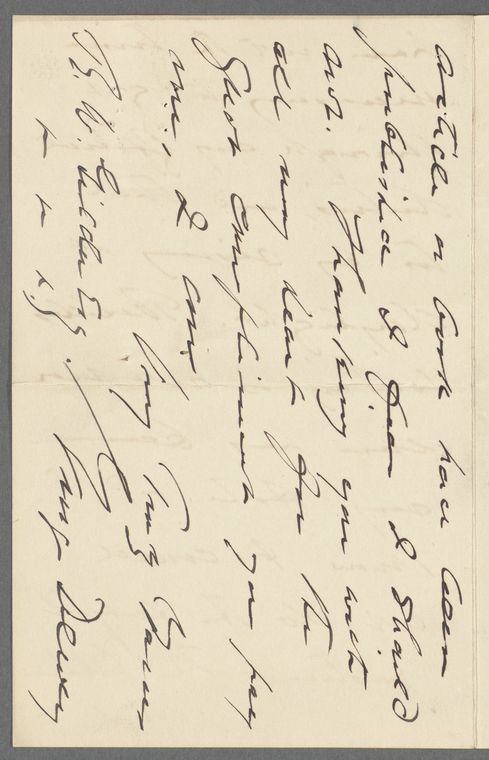 article or book have been
published I fear I should
not. Thanking you with
all my heart for the
great compliment you pay
me, I am
Very Truly Yours
George Dewey
R. W. Gilder Esq.